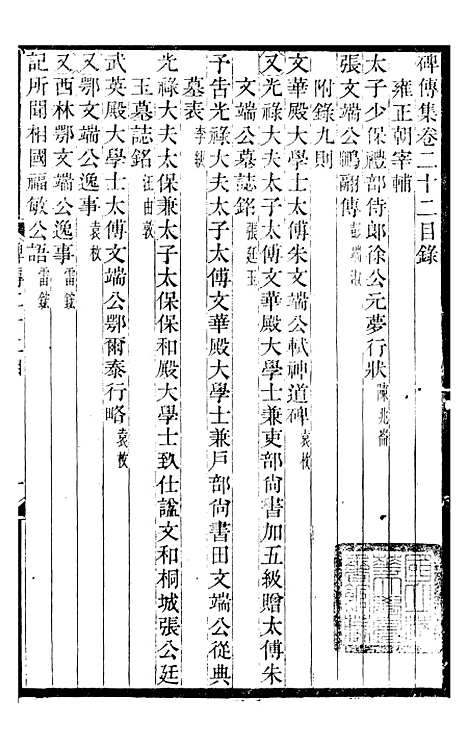 碑傳集卷二十二目錄
雍正朝宰輔
太子少保禮部侍郎徐公元夢行狀 陳兆崙
張文端公鵬翮傳 彭端淑
附錄九則
文華殿大學士太傅朱文端公軾神道碑 袁枚
又光祿大夫太子太傅文華殿大學士兼吏部尚書加五級贈太傅朱
文端公墓誌銘 張廷玉
予告光祿大夫太子太傅文華殿大學士兼戶部尚書田文端公從典
墓表 李紱
光祿大夫太保兼太子太保保和殿大學士致仕諡文和桐城張公廷
玉墓誌銘 汪由敦
武英殿大學士太傅文端公鄂爾泰行略 袁枚
又鄂文端公逸事 袁枚
又西林鄂文端公逸事 雷鋐
記所聞相國福敏公語 雷鋐